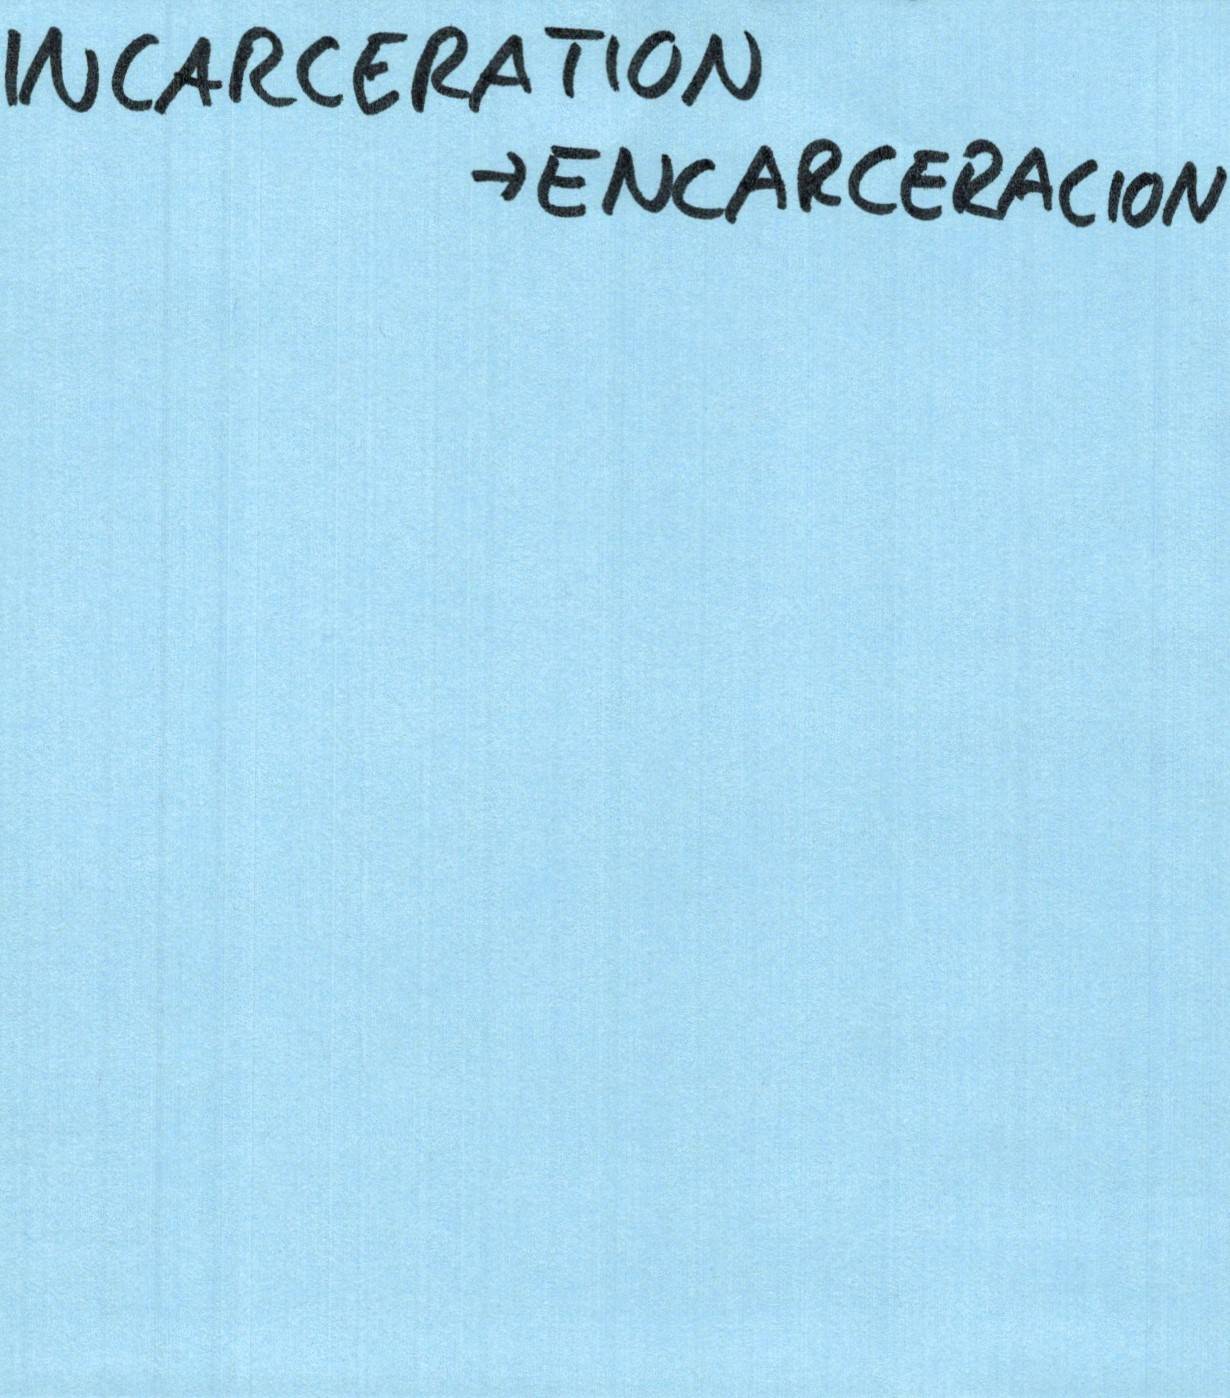 INCARCERATION
→ENCARCERACION